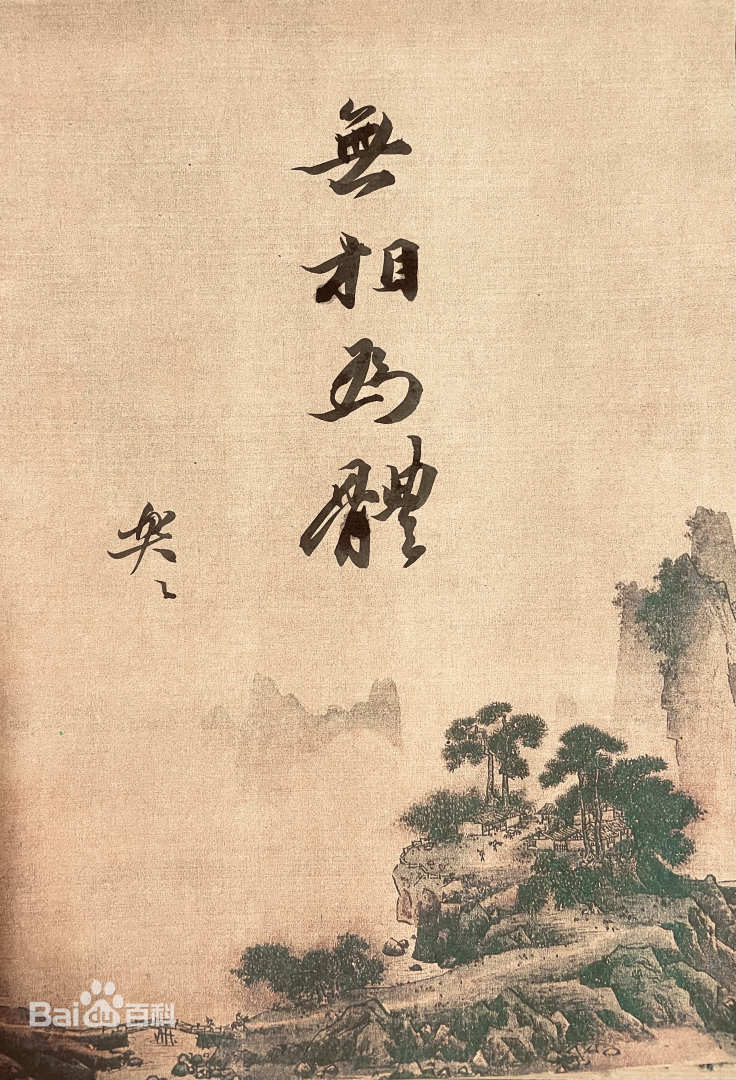 無相為體
樊〻
Bai百科